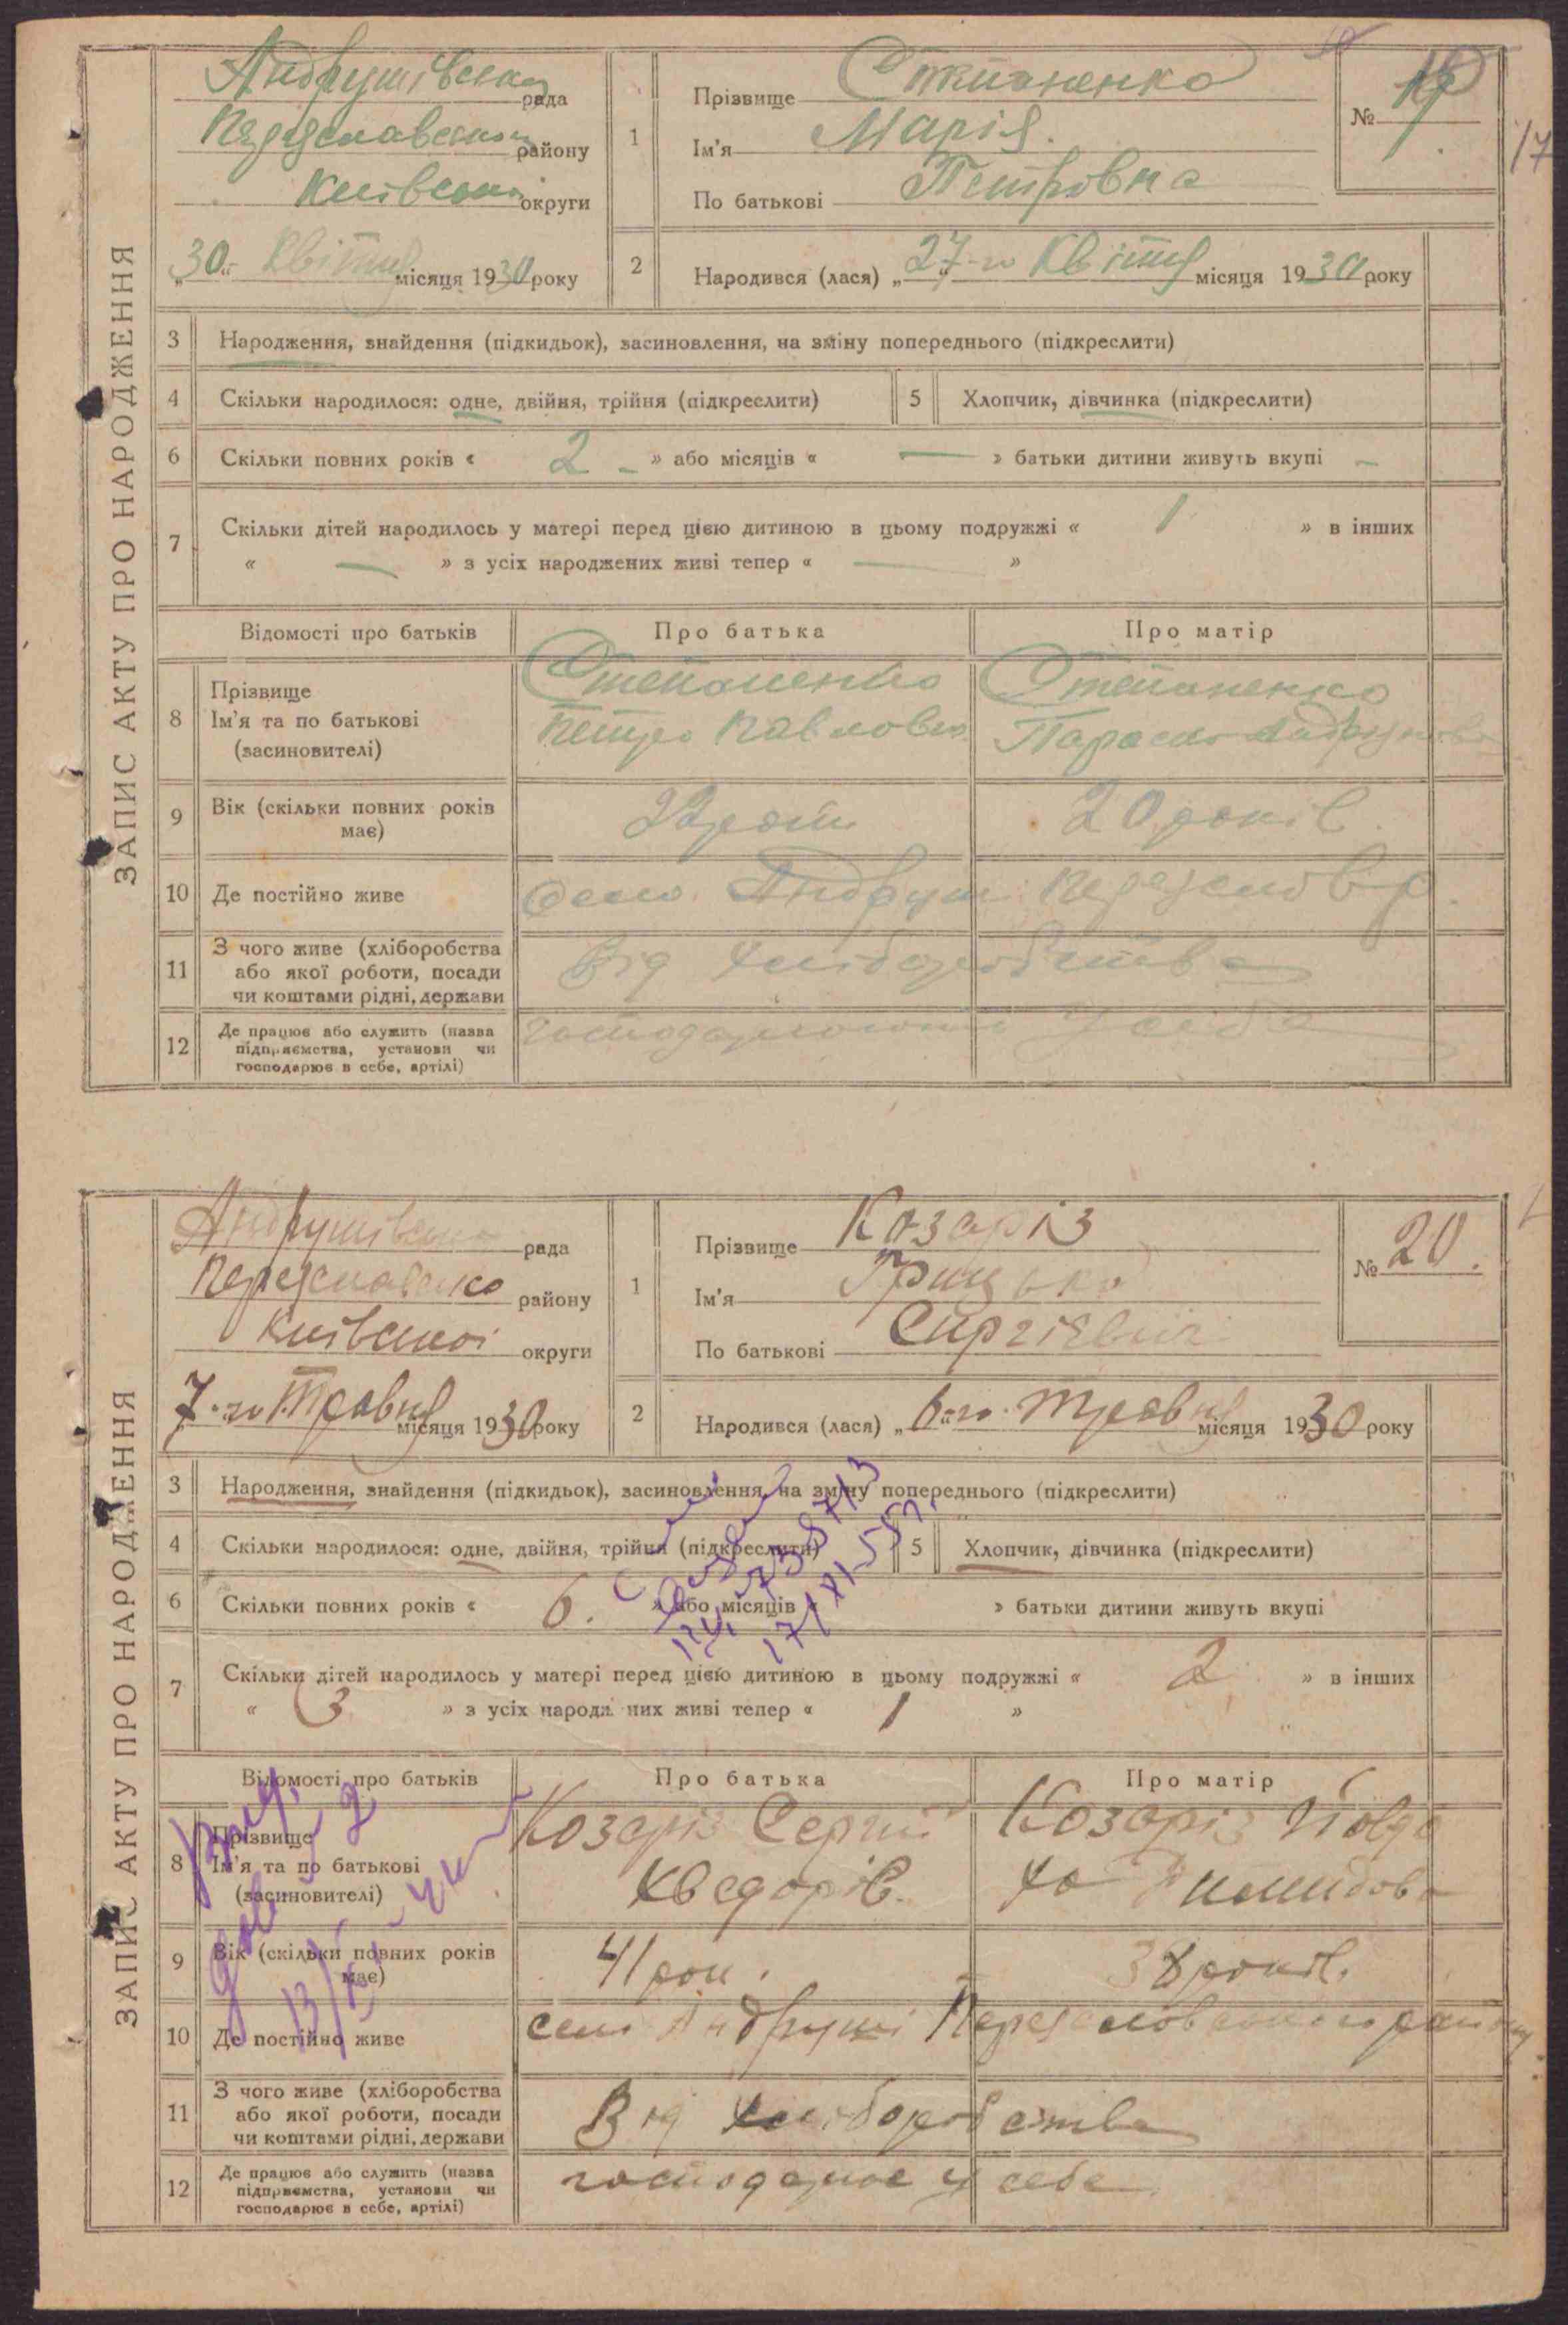 ЗАПИС АКТУ ПРО НАРОДЖЕННЯ
Андрушівська рада
Переяславського району
Київської округи
„30“ Квітня місяця 1930 року
1 Прізвище Степаненко
Ім'я Марія.
По батькові Петровна
№ 19
17
2 Народився (лася) „27-го Квітня місяця 1930 року
3 Народження, знайдення (підкидьок), засиновлення, на зміну попереднього (підкреслити)
4 Скільки народилося: одне, двійня, трійня (підкреслити)
5 Хлопчик, дівчинка (підкреслити)
6 Скільки повних років « 2 – » або місяців « — » батьки дитини живуть вкупі –
7 Скільки дітей народилось у матері перед цією дитиною в цьому подружжі « 1 » в інших
« — » з усіх народжених живі тепер « — »
Відомості про батьків Про батька Про матір
8 Прізвище Ім'я та по батькові (засиновителі)
Степаненко Петро Павлович
Степаненко Параска
9 Вік (скільки повних років має)
20 років.
10 Де постійно живе
село Андруші Переяслів р.
11 З чого живе (хліборобства або якої роботи, посади чи коштами рідні, держави
Від хліборобства
12 Де працює або служить (назва підприємства, установи чи господарює в себе, артілі)
у себе
ЗАПИС АКТУ ПРО НАРОДЖЕННЯ
Андрушівська рада
Переяславсько району
Київської округи
7-го Травня місяця 1930 року
1 Прізвище Козаріз
Ім'я Грицько
По батькові Сергієвич
№ 20.
2 Народився (лася) „6-го Травня місяця 1930 року
3 Народження, знайдення (підкидьок), засиновлення, на зміну попереднього (підкреслити)
4 Скільки народилося: одне, двійня, трійня (підкреслити)
5 Хлопчик, дівчинка (підкреслити)
6 Скільки повних років « 6. » або місяців « » батьки дитини живуть вкупі
7 Скільки дітей народилось у матері перед цією дитиною в цьому подружжі « 2 » в інших
« 3 » з усіх народжених живі тепер « 1 »
Відомості про батьків Про батька Про матір
8 Прізвище Ім'я та по батькові (засиновителі)
Козаріз Сергій Хведорів.
Козаріз Йовдо ха
9 Вік (скільки повних років має)
41 рок.
38 років.
10 Де постійно живе
село Андруші Переяславського району
11 З чого живе (хліборобства або якої роботи, посади чи коштами рідні, держави
Від хліборобства
12 Де працює або служить (назва підприємства, установи чи господарює в себе, артілі)
господарює у себе